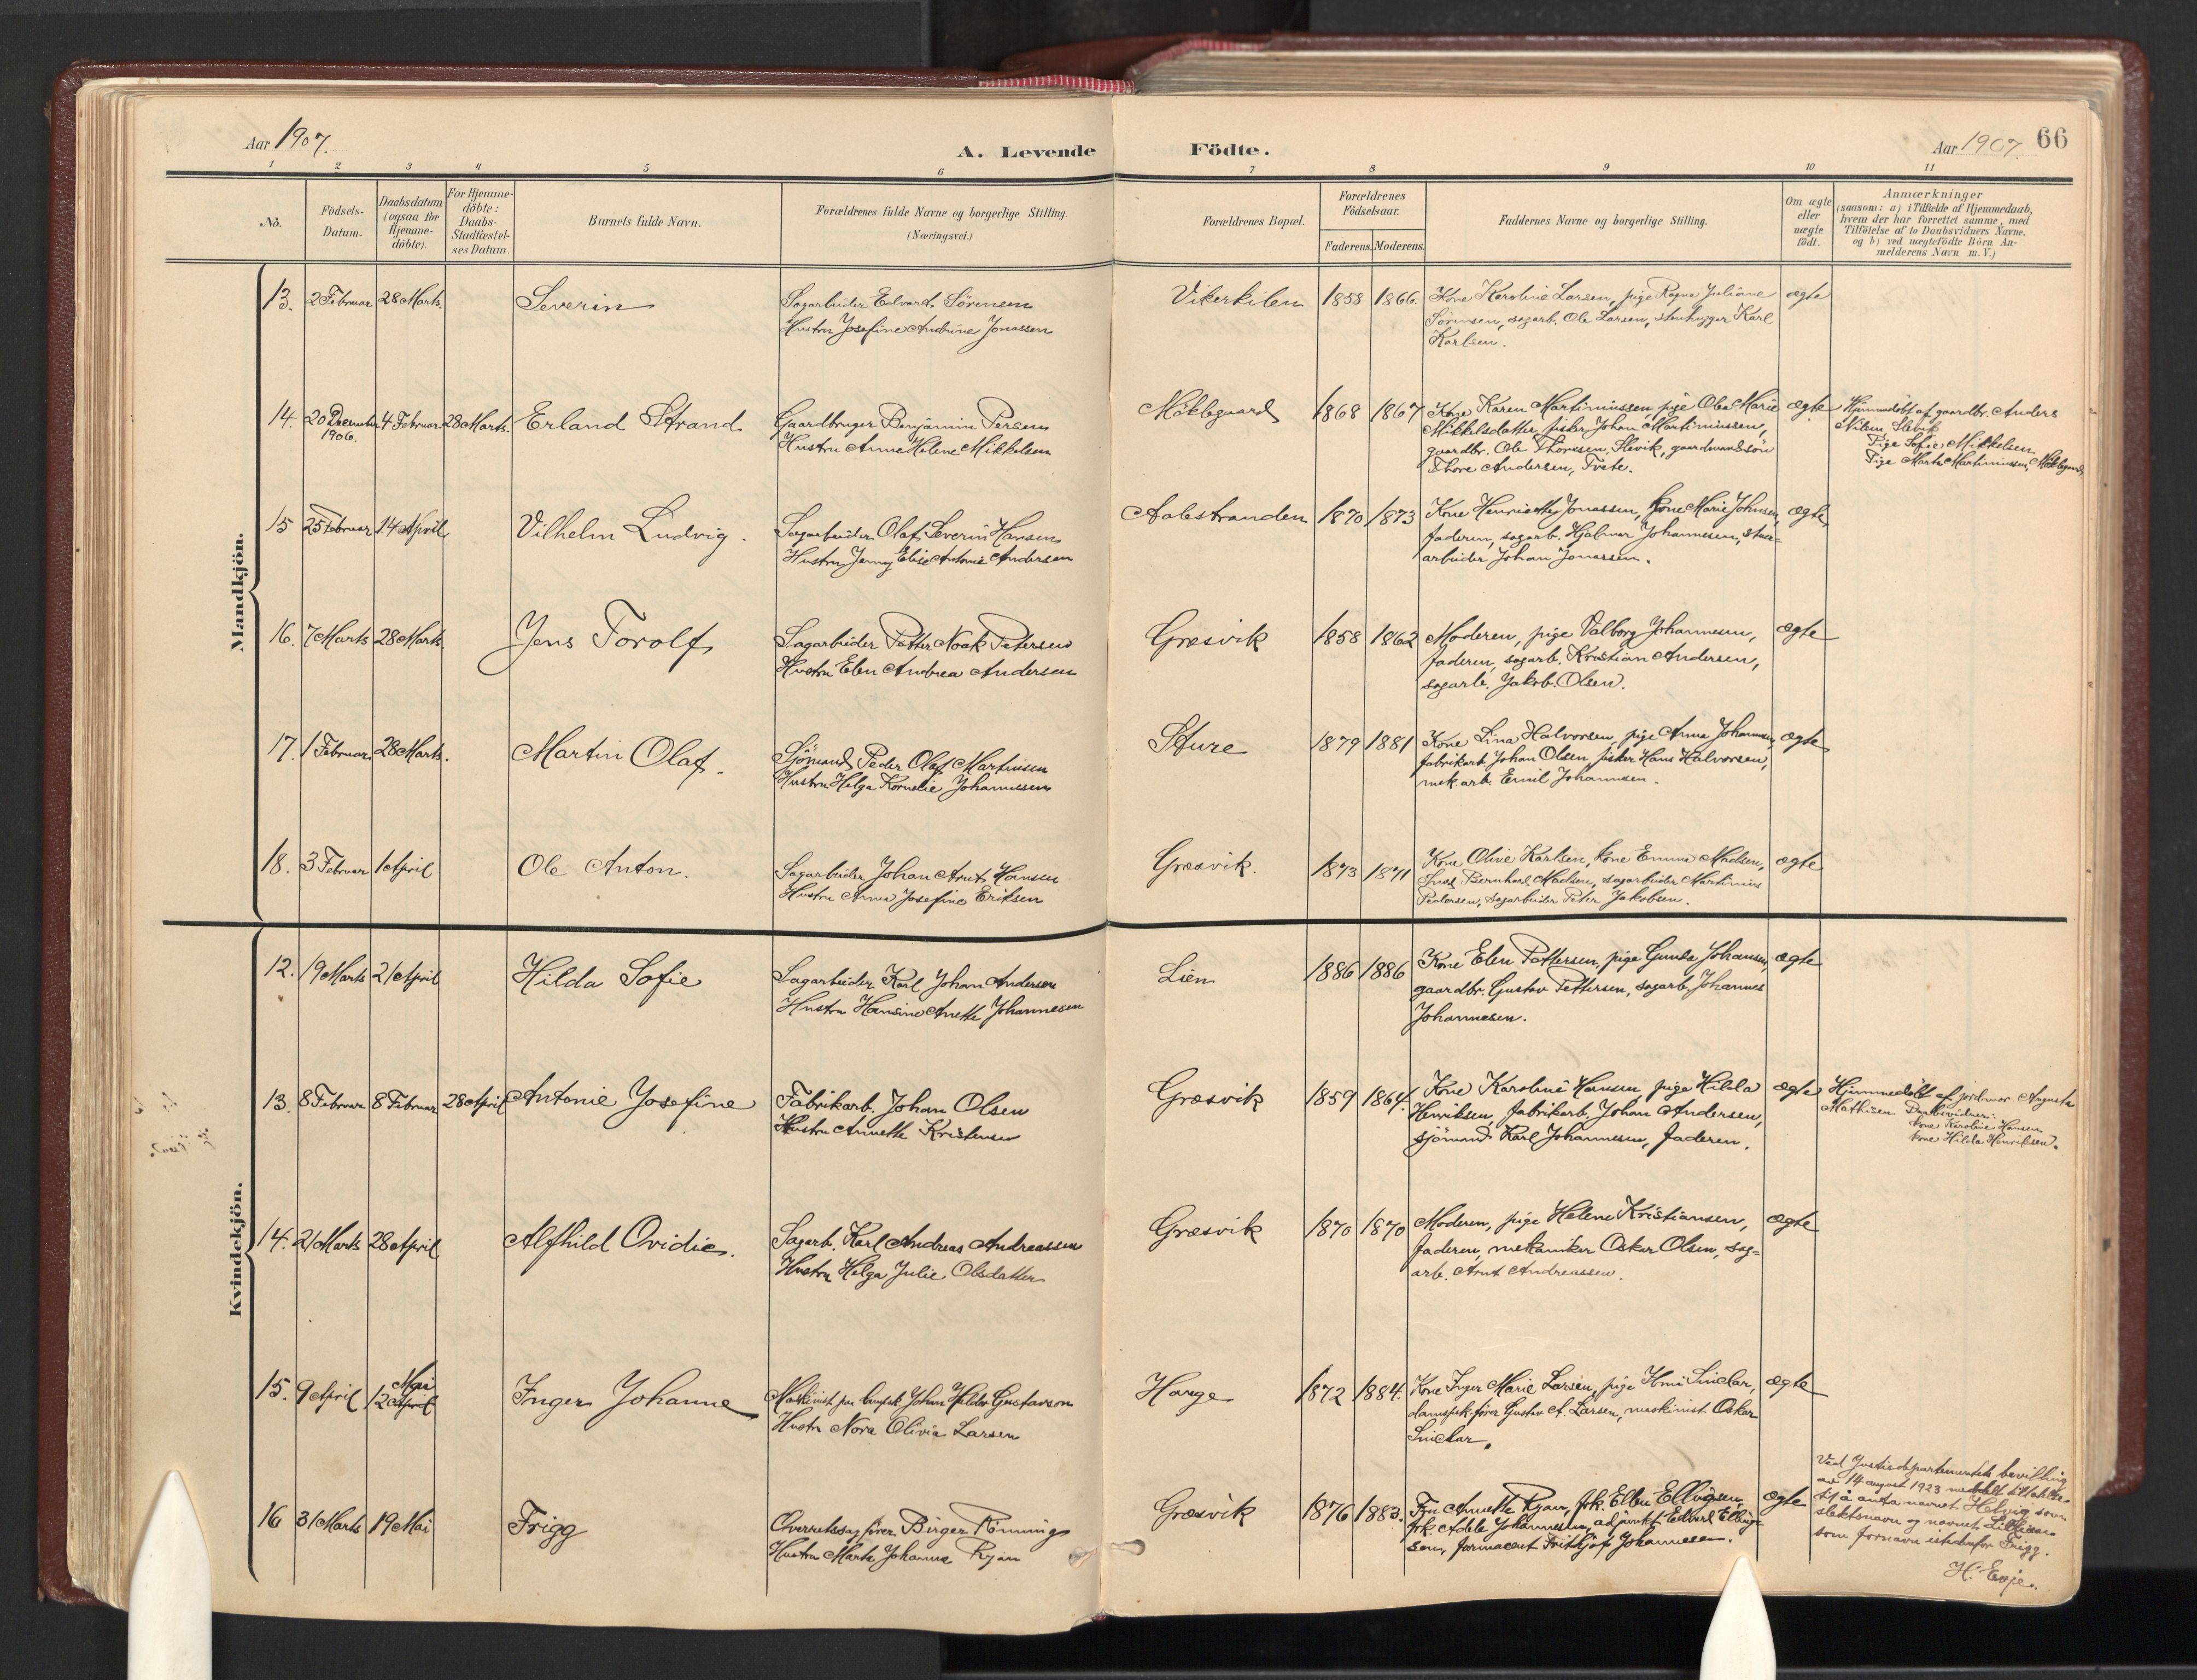 Aar 1907.
A. Levende Födte.
Aar 1907. 66
1 2 3 4 5 6 7 8 9 10 11
No.
Födsels-
Datum.
Daabsdatum
(ogsaa for
Hjemme-
döbte).
For Hjemme-
döbte:
Daabs-
Stadfæstel-
ses Datum.
Barnets fulde Navn.
Forældrenes fulde Navne og borgerlige Stilling.
(Næringsvei.)
Forældrenes Bopæl.
Forældrenes
Födselsaar.
Faderens. Moderens.
Faddernes Navne og borgerlige Stilling.
Om ægte
eller
uægte
födt.
Anmærkninger
(saasom: a) i Tilfælde af Hjemmedaab,
hvem der har forrettet samme, med
Tilföielse af to Daabsvidners Navne.
og b) ved uægtefödte Börn An-
melderens Navn m. V.)
Mandkjön.
13. 2 Februar 28 Marts. Severin
Sagarbeider Edvard Sörensen
Hustru Josefine Andrine Jonassen
Vikerkilen 1858 1866.
Kone Karoline Larsen, pige Ragna Juliane
Sörensen, sagarb. Ole Larsen, stenhugger Karl
Karlsen.
ægte
14. 20 December 4 Februar 28 Marts. Erland Strand
1906.
Gaardbruger Benjamin Persen
Hustru Anne Helene Mikkelsen
Möklegaard 1868 1867
Kone Karen Martiniussen, pige Olea Marie
Mikkelsdatter, fisker Johan Martiniussen,
gaardbr. Ole Thoresen, Slevik, gaardmandssön
Thore Andersen, Tvete.
ægte
Hjemmedöbt af gaardbr. Anders
Nilsen Slevik
Pige Sofie Mikkelsen
Pige Marte Martiniussen, Möklegaard
15 25 Februar 14 April Vilhelm Ludvig.
Sagarbeider Olaf Severin Hansen
Hustru Jenny Elise Antonie Andersen
Aalestranden 1870 1873
Kone Henriette Jonassen, kone Marie Johnsen,
faderen, sagarb. Hjalmar Johannesen, sten-
arbeider Johan Jonassen.
ægte
16. 7 Marts 28 Marts. Jens Torolf
Sagarbeider Petter Noak Petersen
Hustru Elen Andrea Andersen
Græsvik 1858 1862
Moderen, pige Valborg Johannesen,
faderen, sagarb. Kristian Andersen,
sagarb. Jakob Olsen.
ægte
17. 1 Februar 28 Marts. Martin Olaf.
Sjömand Peder Olaf Martinsen
Hustru Helga Kornelie Johannesen
Sture 1879 1881
Kone Lina Halvorsen, pige Anna Johannesen,
fabrikarb. Johan Olsen, fisker Hans Halvorsen,
mek. arb. Emil Johannesen.
ægte
18. 3 Februar 1 April Ole Anton.
Sagarbeider Johan Arnt Hansen
Hustru Anna Josefine Eriksen
Græsvik. 1873 1871
Kone Oline Karlsen, kone Emma Madsen,
Bernhard Madsen, sagarbeider Martinius
Pedersen, sagarbeider Peter Jakobsen.
ægte
Kvindekjön.
12. 19 Marts 21 April Hilda Sofie
Sagarbeider Karl Johan Andersen
Hustru Hansine Anette Johannesen
Lien 1886 1886
Kone Elen Pettersen, pige Gunda Johansen,
gaardbr. Gustav Pettersen, sagarb. Johannes
Johannesen.
ægte
13. 8 Februar 8 Februar 28 April Antonie Josefine
Fabrikarb. Johan Olsen
Hustru Annette Kristensen
Græsvik 1859 1864.
Kone Karoline Hansen pige Hilda
Henriksen, fabrikarb. Johan Andersen,
sjömand Karl Johannesen, faderen.
ægte
Hjemmedöbt af jordmor Augusta
Mathisen Daabsvidner:
kone Karoline Hansen
kone Hilda Henriksen.
14. 21 Marts 28 April Alfhild Ovidie.
Sagarb. Karl Andreas Andreassen
Hustru Helga Julie Olsdatter
Græsvik 1870 1870
Moderen, pige Helene Kristiansen,
faderen, mekaniker Oskar Olsen, sag-
arb. Arnt Andreassen.
ægte
Mai
15. 9 April 12 April Inger Johanne
Maskinist Johan Gustavson
Hustru Nora Olivia Larsen
Hauge 1872 1884.
Kone Inger Marie Larsen, pige Sneckar,
dampsk. förer Gustav A. Larsen, maskinist Oskar
Sneckar.
ægte
16 31 Marts 19 Mai Frigg
Overretssagförer Birger Rönning
Hustru Marta Johanna Ryan
Græsvik 1876 1883.
Fru Annette Ryan, frk. Ellen Ellingsen,
frk. Adele Johannesen, adjunkt Edvard Elling-
sen, farmaceut Frithjof Johannesen.
ægte
Ved Justisdepartementets bevilling
av 14 august 1923 meddelt tilladelse
til å anta navnet Helvig som
slektsnavn og navnet Lillian
som fornavn istedenfor Frigg.
H. Evje.